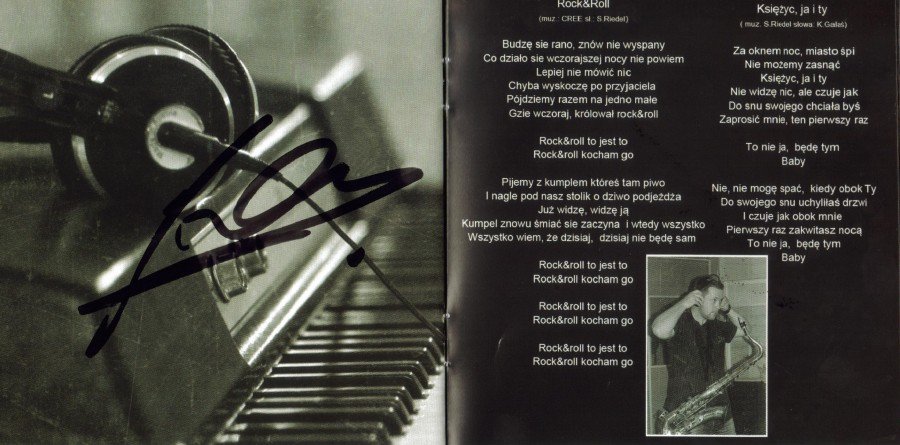 Rock&Roll
(muz.: CREE sł.: S.Riedel)
Budzę sie rano, znów nie wyspany
Co działo sie wczorajszej nocy nie powiem
Lepiej nie mówić nic
Chyba wyskoczę po przyjaciela
Pójdziemy razem na jedno małe
Gzie wczoraj, królował rock&roll
Rock&roll to jest to
Rock&roll kocham go
Pijemy z kumplem któreś tam piwo
I nagle pod nasz stolik o dziwo podjeżdża
Już widzę, widzę ją
Kumpel znowu śmiać sie zaczyna i wtedy wszystko
Wszystko wiem, że dzisiaj, dzisiaj nie będę sam
Rock&roll to jest to
Rock&roll kocham go
Rock&roll to jest to
Rock&roll kocham go
Rock&roll to jest to
Rock&roll kocham go
Księżyc, ja i ty
( muz. S.Riedel słowa: K.Gałaś)
Za oknem noc, miasto śpi
Nie możemy zasnąć
Księżyc, ja i ty
Nie widzę nic, ale czuje jak
Do snu swojego chciała byś
Zaprosić mnie, ten pierwszy raz
To nie ja, będę tym
Baby
Nie, nie mogę spać, kiedy obok Ty
Do swojego snu uchyliłaś drzwi
I czuje jak obok mnie
Pierwszy raz zakwitasz nocą
To nie ja, będę tym
Baby